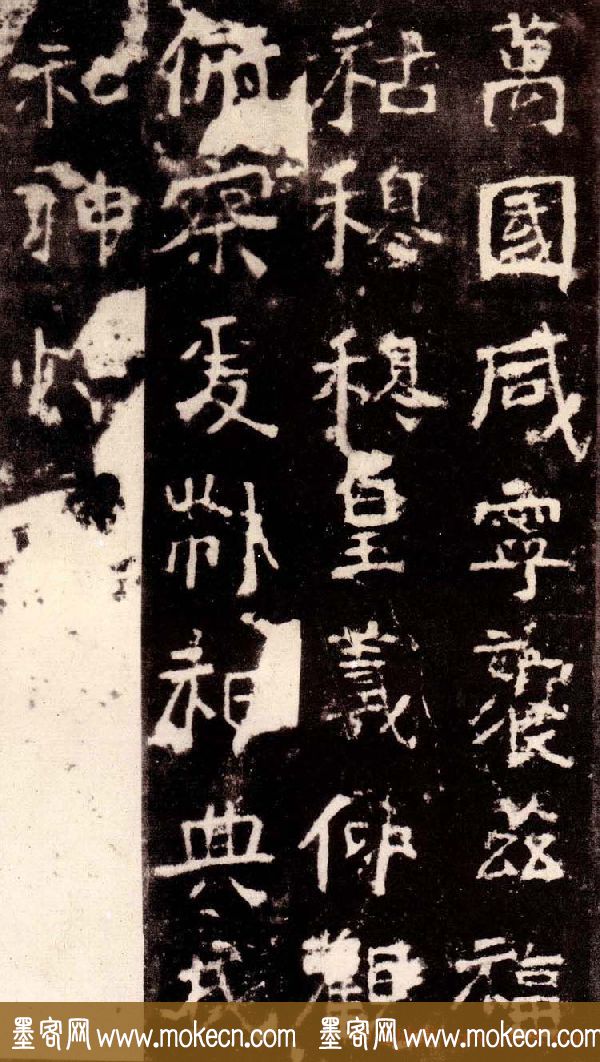 萬國咸寧獲茲福
祜穆穆皇羲仰觀
俯察爰制祀典
神
墨客网 www.mokecn.com 墨客网 www.mokecn.com